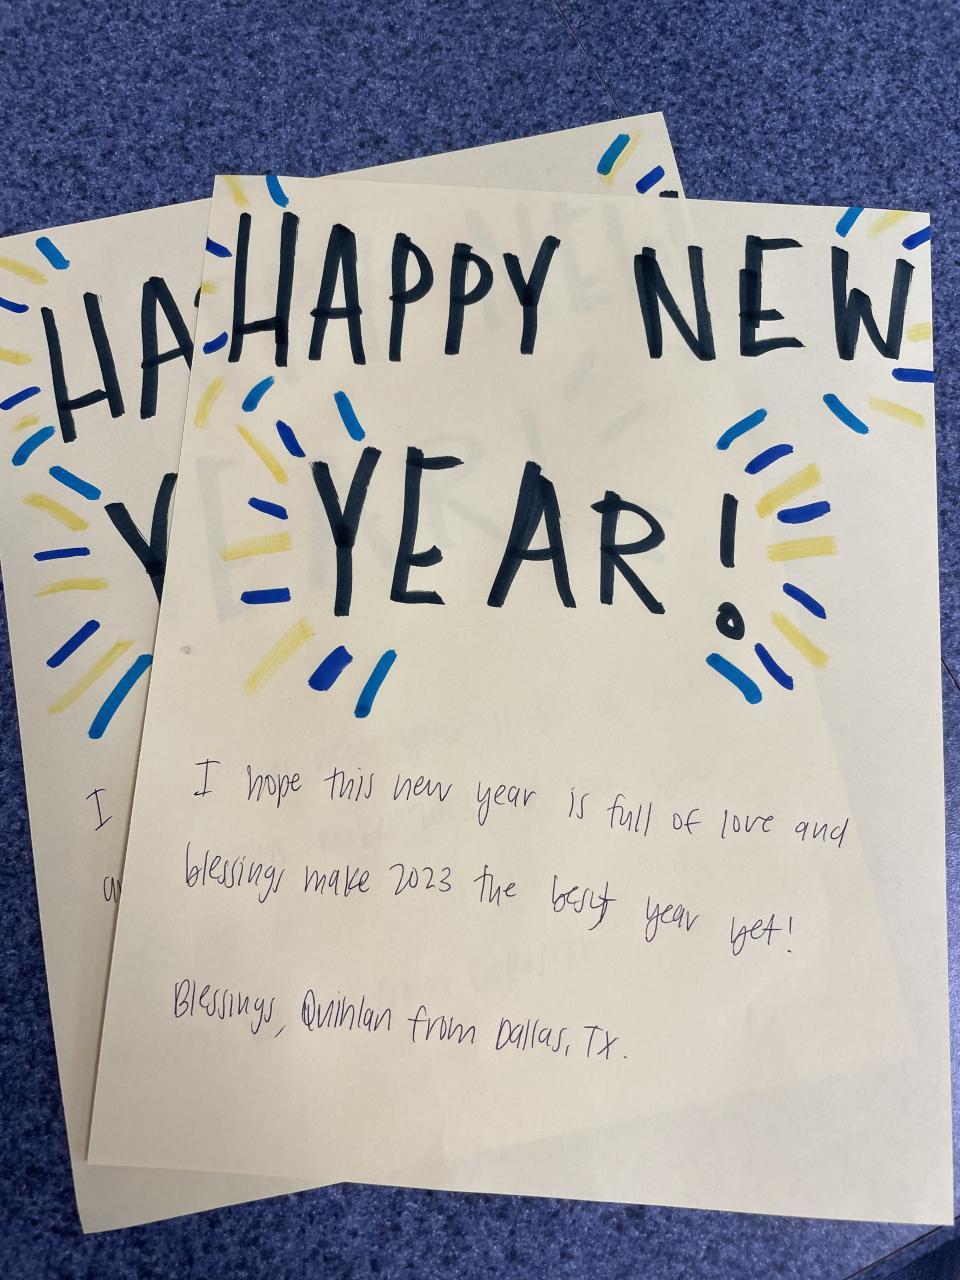 HAPPY NEW
YEAR!
I hope this new year is full of love and
blessings make 2023 the best year yet!
Blessings, Quinlan from Dallas, TX.
HA
Y
I